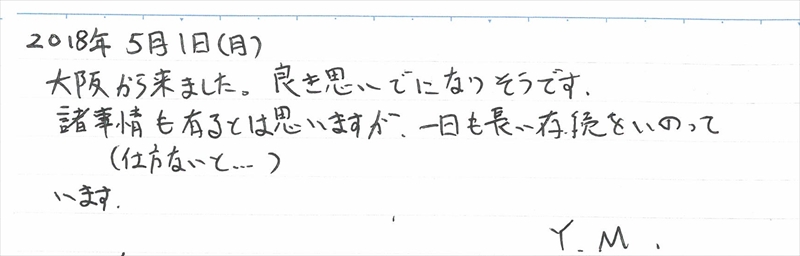 2018年 5月1日(月)
大阪から来ました。良き思いでになりそうです.
諸事情も有るとは思いますが、一日も長い存続をいのって
(仕方ないと…)
います.
Y.M.